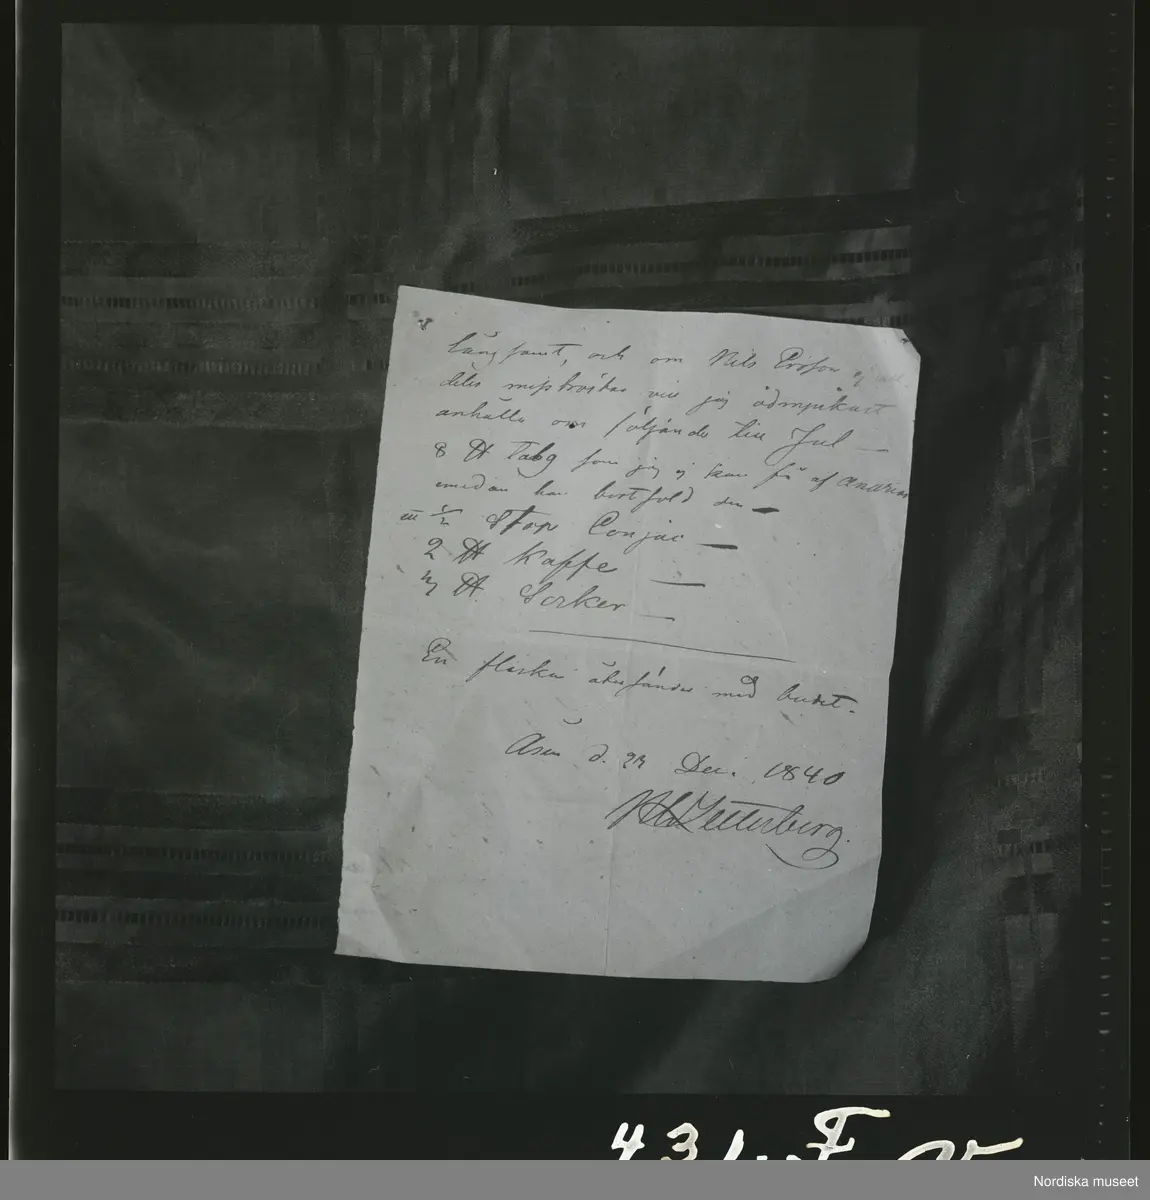 långsamt, och om Nils Ersson ej
deles misströstar vill jag ödmjukast
anhålla om följande till Jul —
8 ℔ Talg som jag ej kan få af
emedan han bortsold den —
1/2 Stop Conjac —
2 ℔ Kaffe —
℔ Socker —
En flaska återsändes med budet.
Åsen d. 23 Dec. 1840
Zetterberg.
43
Nordiska museet